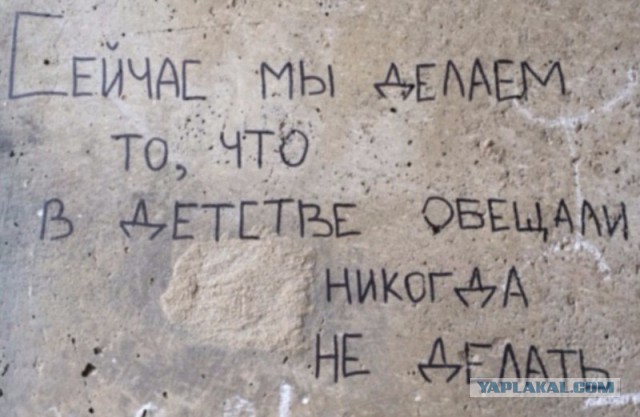 СЕЙЧАС МЫ ДЕЛАЕМ
ТО, ЧТО
В ДЕТСТВЕ ОБЕЩАЛИ
НИКОГДА
НЕ ДЕЛАТЬ
YAPLAKAL.COM